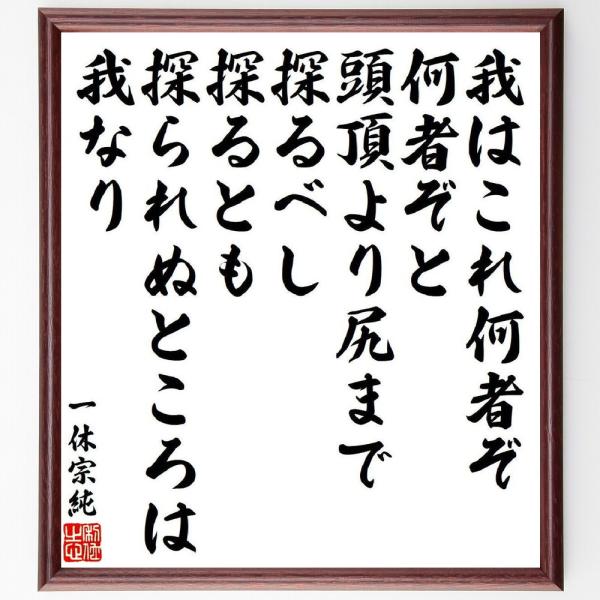 我はこれ何者ぞ
何者ぞと
頭頂より尻まで
探るべし
探るとも
探られぬところは
我なり
一休宗純